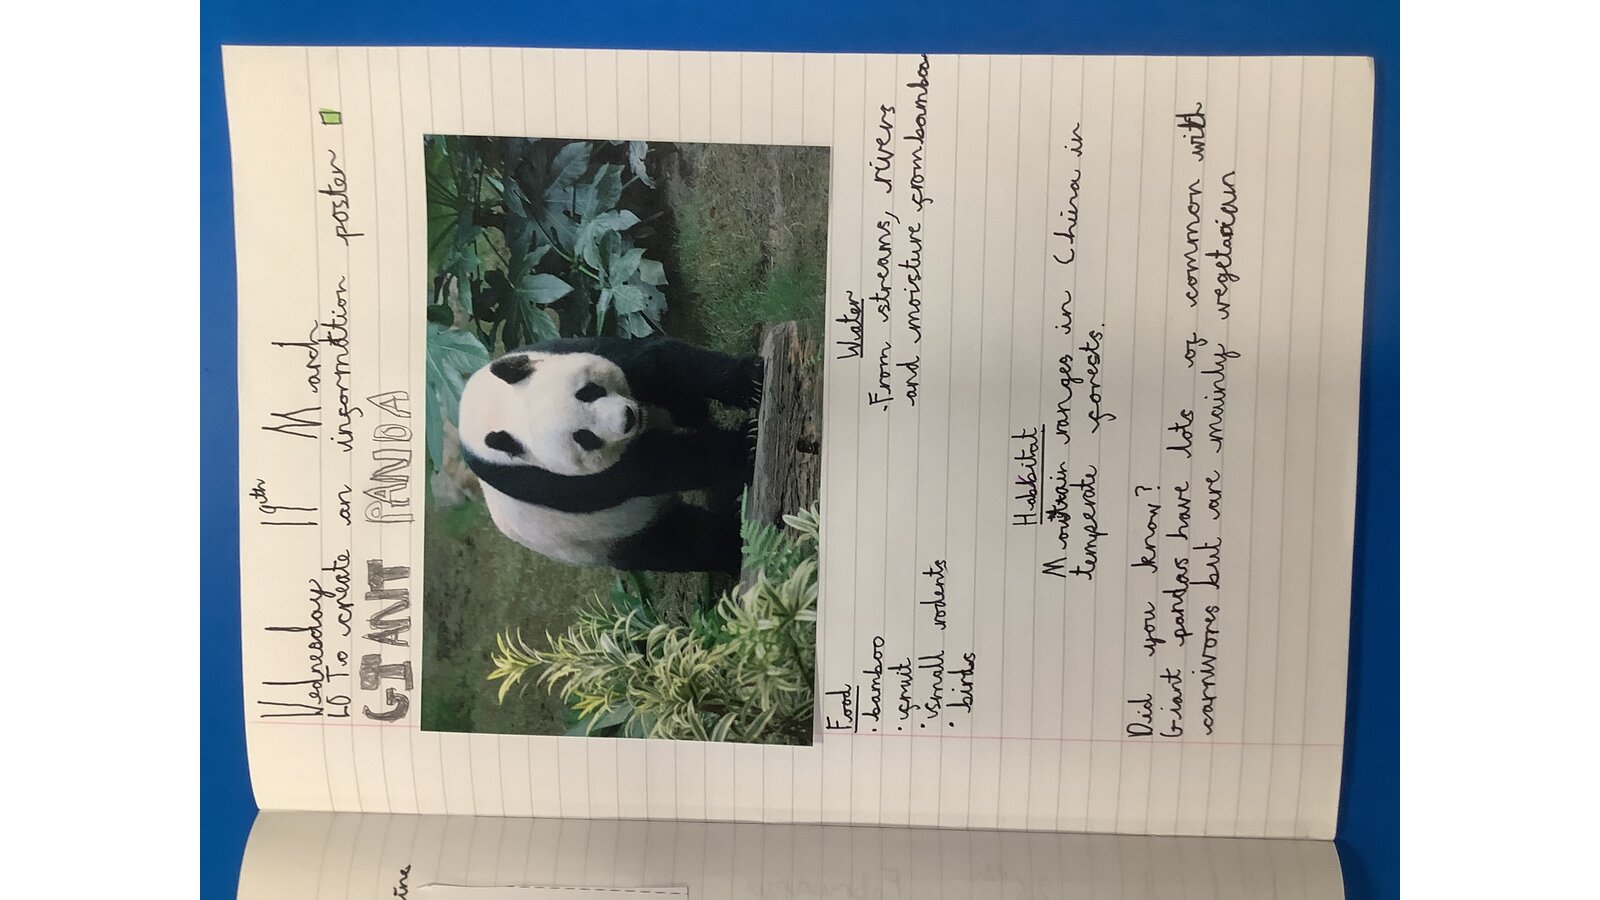 Wednesday 19th March
LO To create an information poster
GIANT PANDA
Food
· bamboo
· fruit
· small rodents
· birds
Water
· From streams, rivers
and moisture from bamboo
Habbitat
Moutain ranges in China in
temperate forests.
Did you know?
Giant pandas have lots of common with
carnivores but are mainly vegetarian